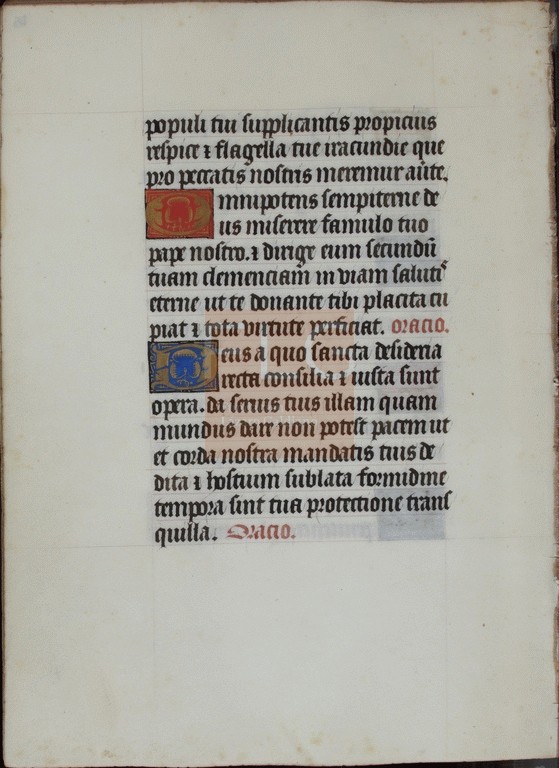 populi tui supplicantis propicius
respice ⁊ flagella tue iracundie que
pro peccatis nostris meremur auṫe.
Omnipotens sempiterne de
us miserere famulo tuo
pape nostro. ⁊ dirige eum secundū
tuam clemenciam in viam salutis
eterne ut te donante tibi placita cu
piat ⁊ tota virtute perficiat. Oracio.
Deus a quo sancta desideria
recta consilia ⁊ iusta sunt
opera. da seruis tuis illam quam
mundus dare non potest pacem ut
et corda nostra mandatis tuis de
dita ⁊ hostium sublata formidine
tempora sint tua protectione trans
quilla. Oracio.